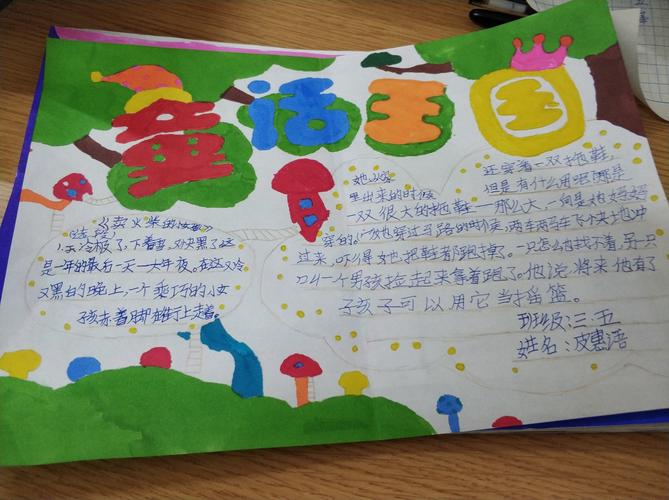 童话王国
《卖火柴的小女孩》
(选段)
天冷极了,下着雪,又快黑了。这
是一年的最后一天—大年夜。在这又冷
又黑的晚上,一个乖巧的小女
孩赤着脚在街上走着。
她从家
里出来的时候
还穿着一双拖鞋,
但是有什么用呢?那是
一双很大的拖鞋——那么大,一向是她妈妈
穿的。她穿过马路的时候,两车马车飞冲过
来,吓得她把鞋都跑掉了。一只怎么也找不着,另一只
叫一个男孩捡起来拿着跑了。他说将来他有了
孩子可以用它当摇篮。
班级:三.五
姓名:皮惠语